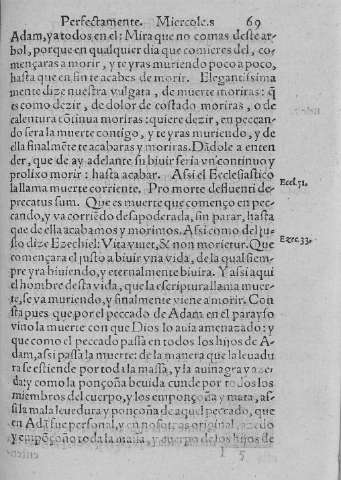 Perfectamente. Miercoles 69
Adam, ya todos en el: Mira que no comas deste ar-
bol, porque en qualquier dia que comieres del, co-
mençaras a morir, y te yras muriendo poco a poco,
hasta que en fin te acabes de morir. Elegantissima
mente dize nuestra vulgata, de muerte moriras: q̃
es como dezir, de dolor de costado moriras, o de
calentura cõtinua moriras: quiere dezir, en peccan-
do sera la muerte contigo, y te yras muriendo, y de
ella finalmẽte te acabaras y moriras. Dãdole a enten
der, que de ay adelante su biuir seria vn continuo y
prolixo morir: hasta acabar. Assi el Ecclesiastico
la llama muerte corriente. Pro morte defluenti de- Eccl. 51.
precatus sum. Que es muerte que començo en pec-
cando, y va corriẽdo desapoderada, sin parar, hasta
que de ella acabamos y morimos. Assi como del ju-
sto dize Ezechiel: Vita viuet, & non morietur. Que Ezec. 33.
començara el justo a biuir vna vida, de la qual siem-
pre yra biuiendo, y eternalmente biuira. Y assi aqui
el hombre desta vida, que la escriptura llama muer-
te, se va muriendo, y finalmente viene a morir. Con
sta pues que por el peccado de Adam en el parayso
vino la muerte con que Dios lo auia amenazado: y
que como el peccado passa en todos los hijos de A-
dam, assi passa la muerte: de la manera que la leuadu
ra se estiende por toda la massa, y la auinagra y aze-
da: y como la ponçoña beuida cunde por todos los
miembros del cuerpo, y los emponçoña y mata, as-
si la mala leuedura y ponçoña de aquel peccado, que
en Adã fue personal, y en nosotros original, azedo
y empõçoño toda la massa, y cuerpo de los hijos de
I 5